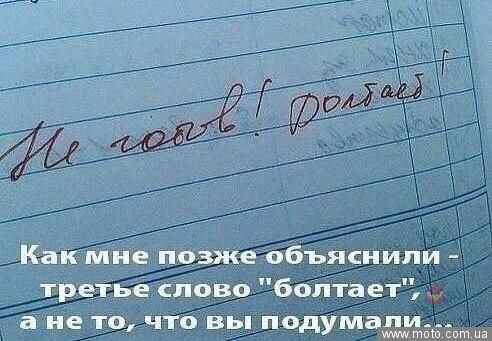 Не готов! Болтает!
Как мне позже объяснили -
третье слово "болтает",
а не то, что вы подумали...
www.moto.com.ua